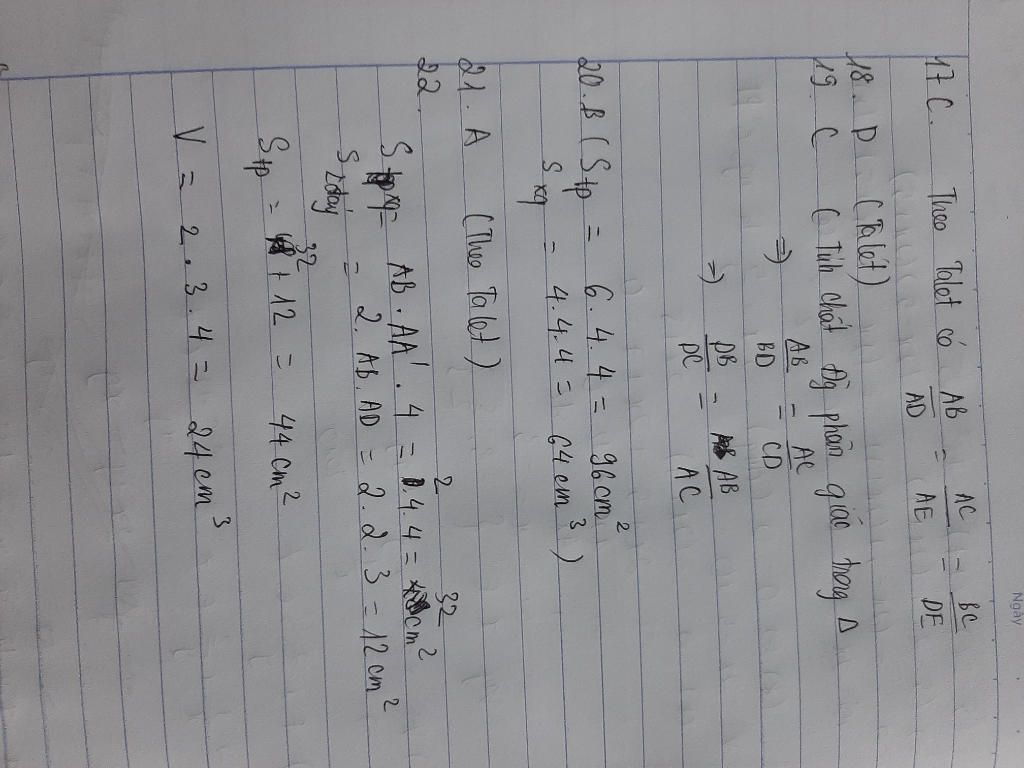 Ngày
17 C. Theo Talet có AB/AD = AC/AE = BC/DE
18. D (Talét)
19. C (Tính chất đg phân giác trong Δ
=> AB/BD = AC/CD
=> DB/DC = AB/AC
20. B (Stp = 6.4.4 = 96cm²
Sxq = 4.4.4 = 64cm³)
21. A (Theo Talet)
22.
Sxq = AB.AA'.4 = 2.4.4 = 32cm²
S2đáy = 2.AB.AD = 2.2.3 = 12cm²
Stp = 32 + 12 = 44cm²
V = 2.3.4 = 24cm³